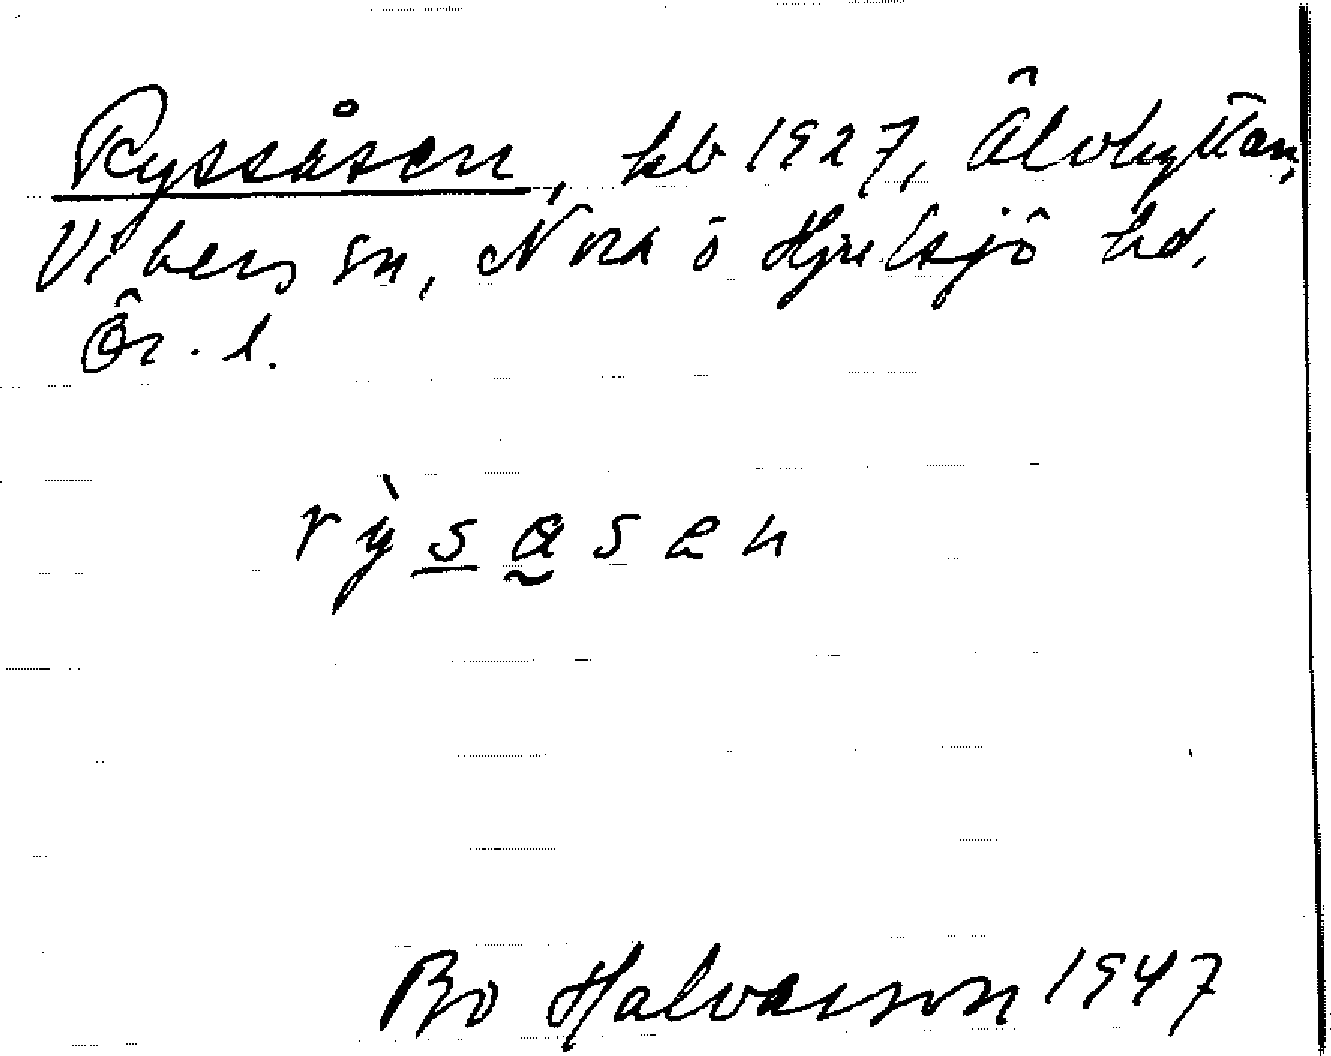 Ryssåsen, kb 1927, Älvhyttan,
Vikers sn, Nora o Hjulsjö hd.
Ör. l.
rỳsåsen
Bo Halvarson 1947